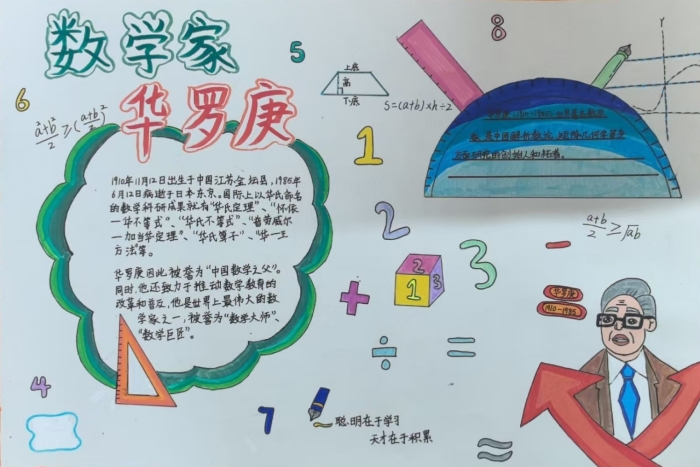 数学家
华罗庚
1910年11月12日出生于中国江苏金坛县，1985年
6月12日病逝于日本东京。国际上以华氏命名
的数学科研成果就有“华氏定理”、“怀依
一华不等式”、“华氏不等式”、“普劳威尔
一加当华定理”、“华氏算子”、“华一王
方法”等。
华罗庚因此被誉为“中国数学之父”。
同时，他还致力于推动数学教育的
改革和普及，他是世界上最伟大的数
学家之一，被誉为“数学大师”、
“数学巨匠”。
6
5
8
4
7
1
2
3
2
1
3
+
÷
=
-
≈
a²+b²/2 ≥ (a+b/2)²
上底
高
下底
S=(a+b)×h÷2
a+b/2 ≥ √ab
Y
华罗庚
1910-1985
聪明在于学习
天才在于积累